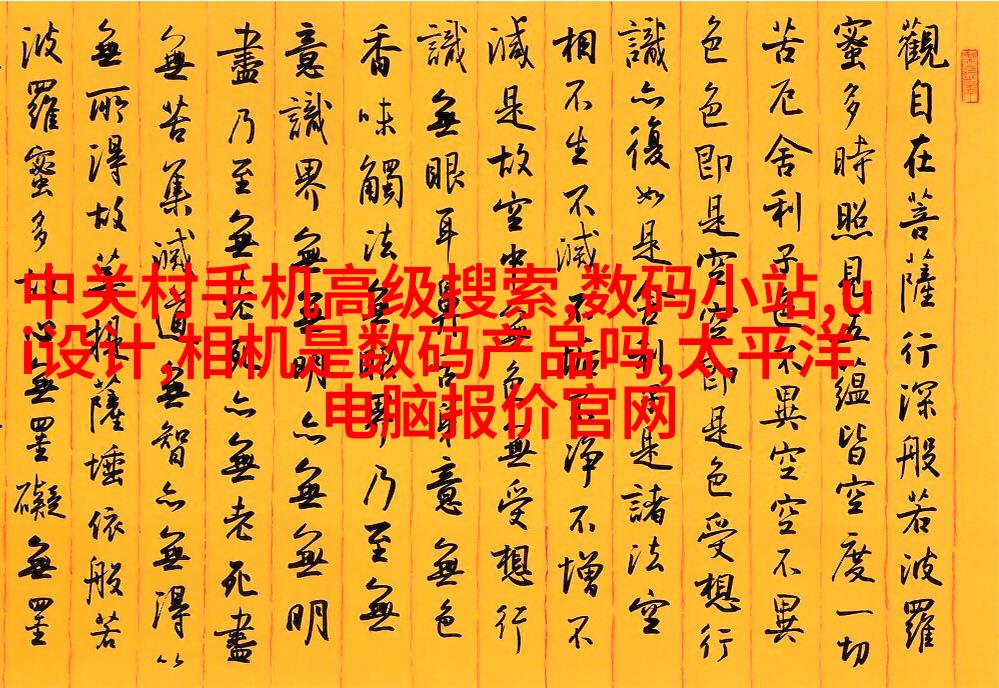 觀自在菩薩行深般若波羅
蜜多時照見五蘊皆空度一切
苦厄舍利子色不異空空不異
色色即是空空即是色受想行
識亦復如是舍利子是諸法空
相不生不滅不垢不淨不增不
減是故空中無色無受想行
識無眼耳鼻舌身意無色
香味觸法無眼界乃至無
意識界無無明亦無無明
盡乃至無老死亦無老死盡
無苦集滅道無智亦無得以
無所得故菩提薩埵依般若
波羅蜜多故心無罣礙無罣
中关村手机高级搜索,数码小站,u
i设计,相机是数码产品吗,太平洋
电脑报价官网